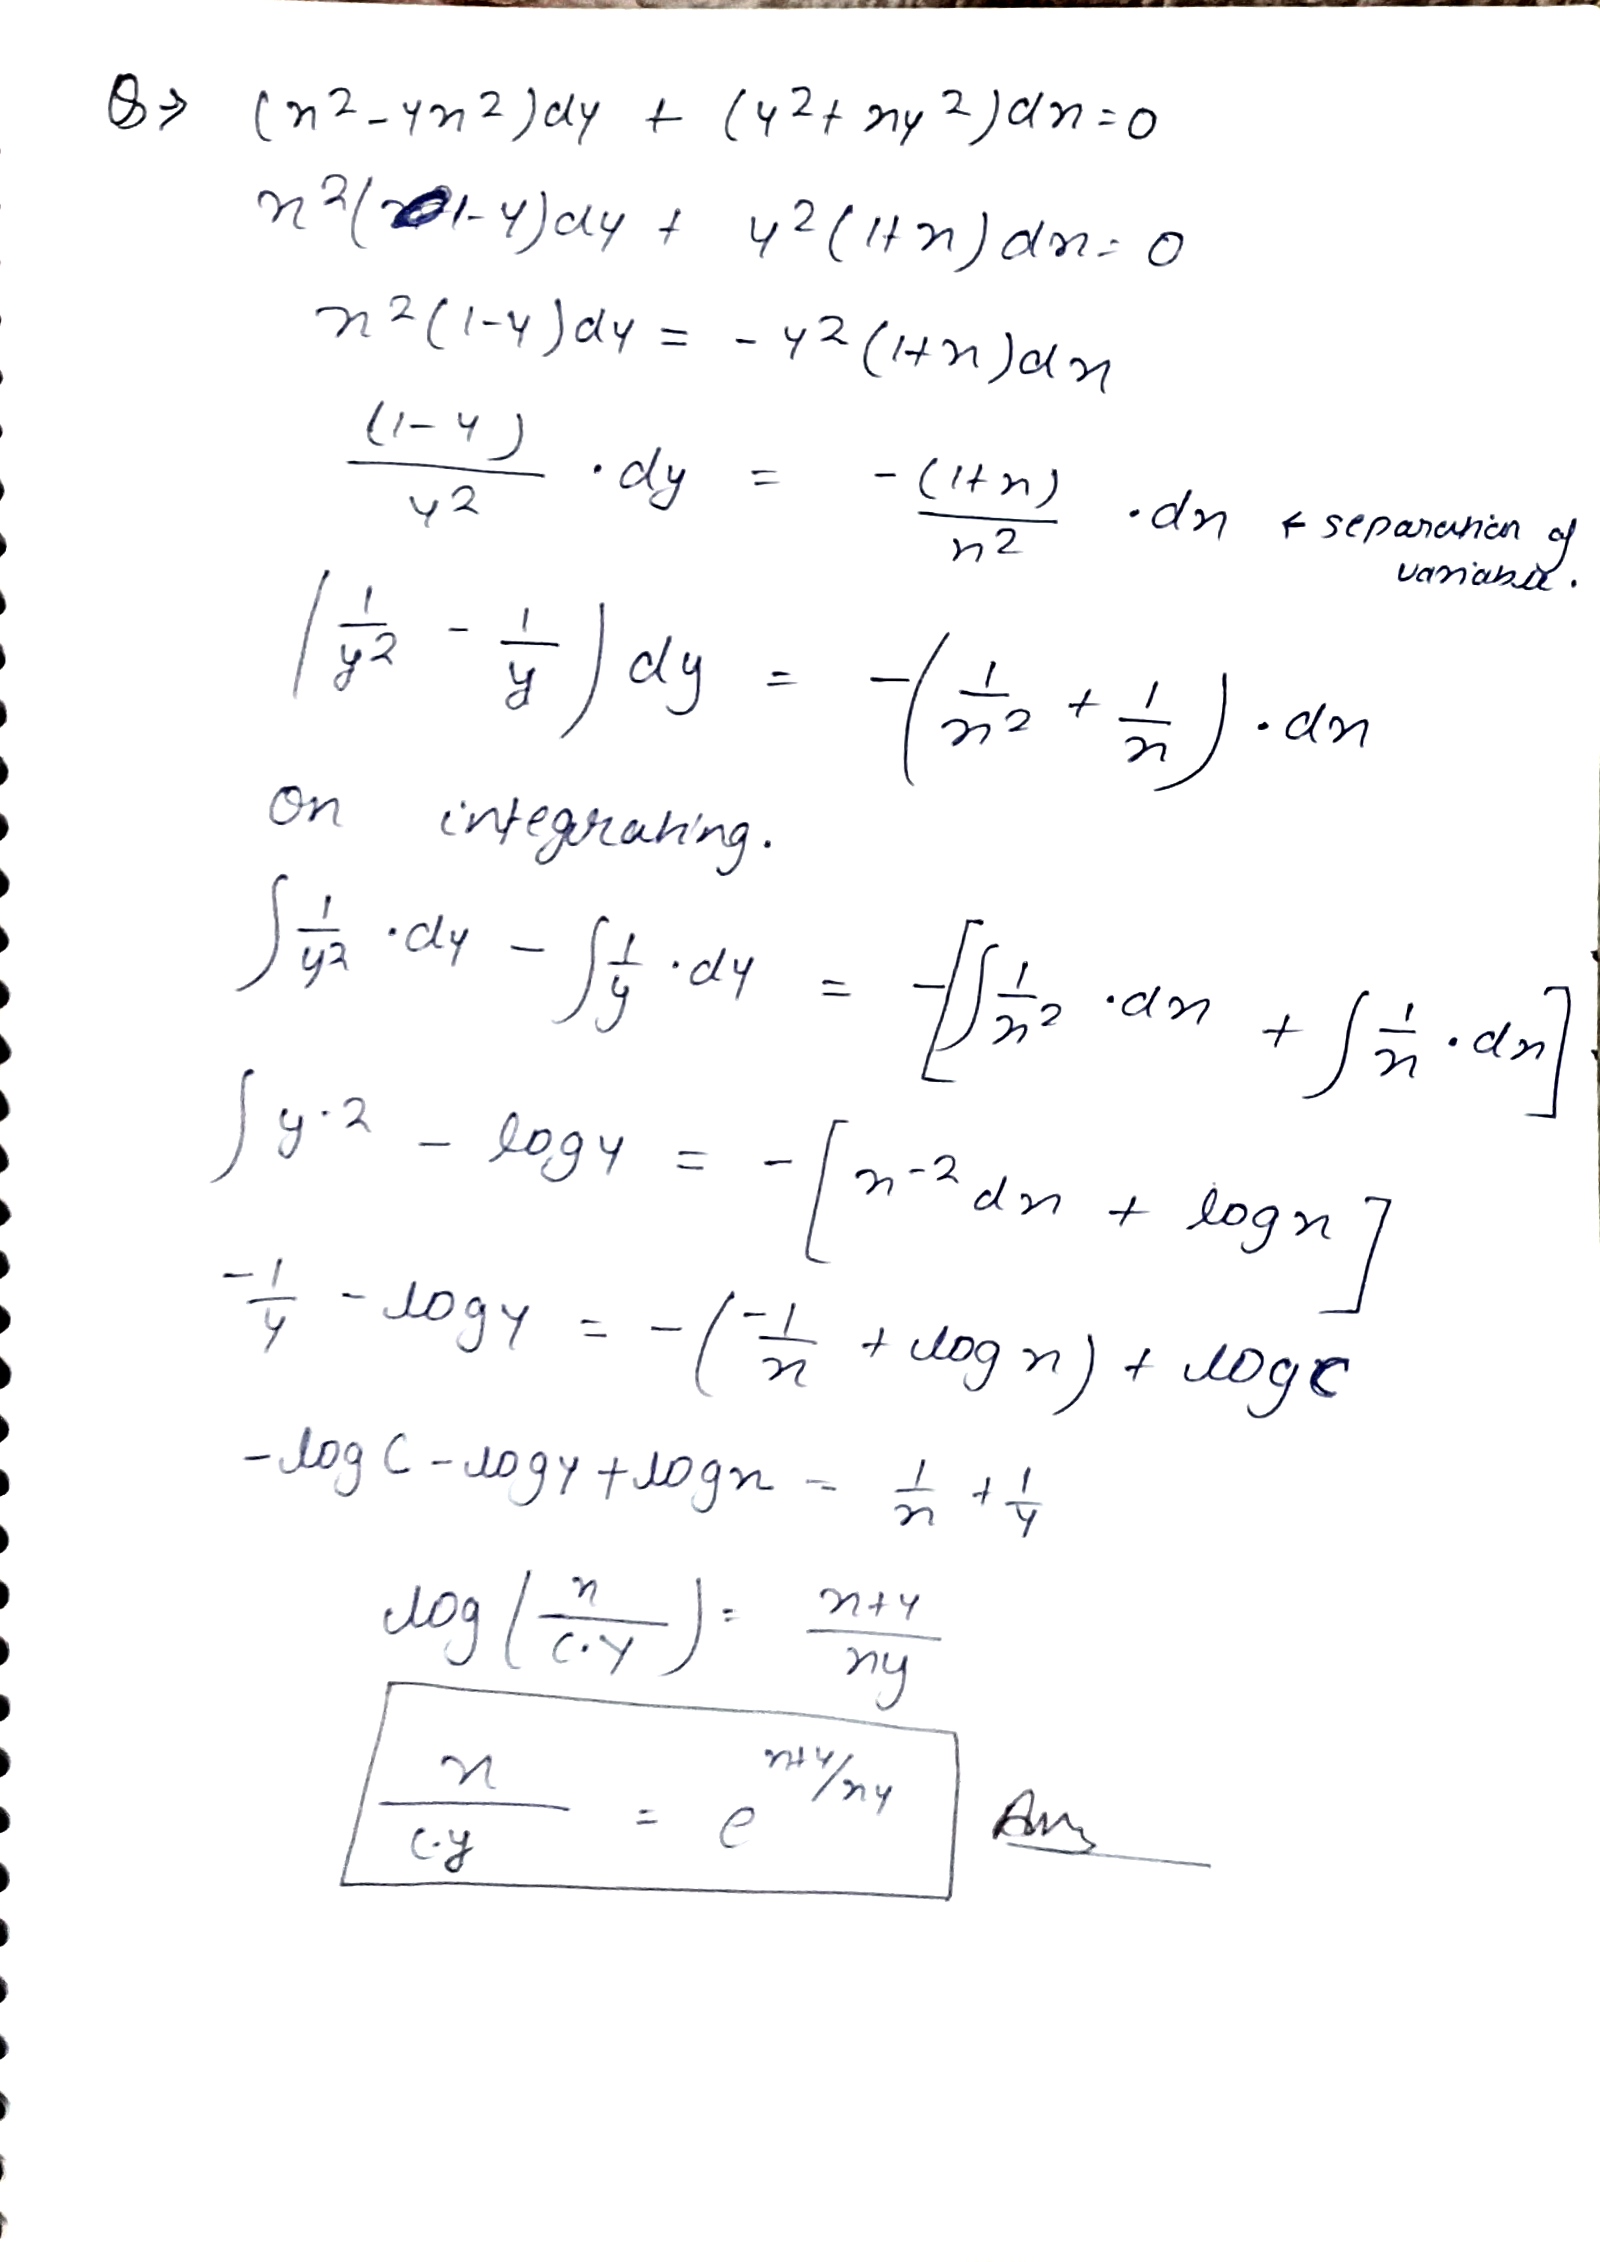 Q⇒ (x2-yx2)dy + (y2+xy2)dx=0
x2(1-y)dy + y2(1+x)dx=0
x2(1-y)dy = -y2(1+x)dx
(1-y)/y2 ·dy = -(1+x)/x2 ·dx ← separation of variable.
(1/y2 - 1/y)dy = -(1/x2 + 1/x)·dx
on integrating.
∫1/y2 ·dy - ∫1/y ·dy = -[∫1/x2 ·dx + ∫1/x ·dx].
∫y-2 - log y = -[x-2 dx + log x]
-1/y - log y = -(-1/x + log x) + log c
-log C - log y + log x = 1/x + 1/y
log(x/c·y) = x+y/xy
x/c·y = e^x+y/xy Ans